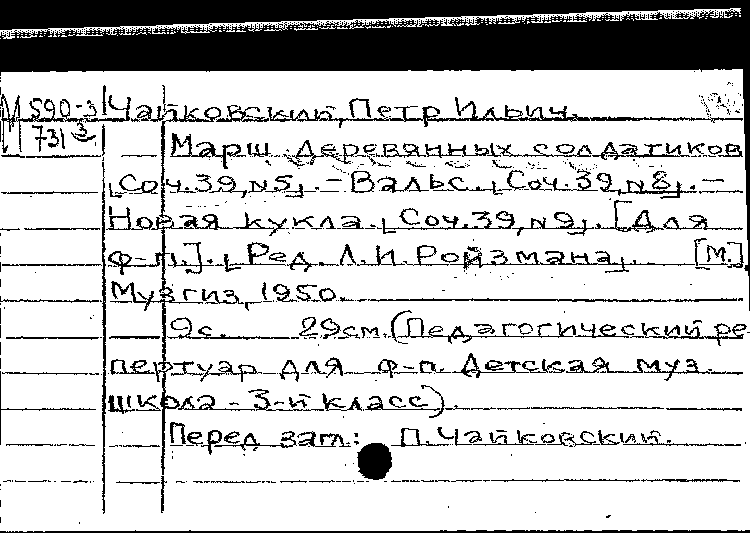 М 590-3 Чайковский, Петр Ильич.
731 3 Марш деревянных солдатиков
[Соч. 39, №5]. - Вальс. [Соч. 39, №8]. -
Новая кукла. [Соч. 39, №9]. [Для
ф-п.]. [Ред. Л. И. Ройзмана]. [М.],
Музгиз, 1950.
9 с. 29 см. (Педагогический ре-
пертуар для ф-п. Детская муз.
школа - 3-й класс).
Перед загл.: П. Чайковский.